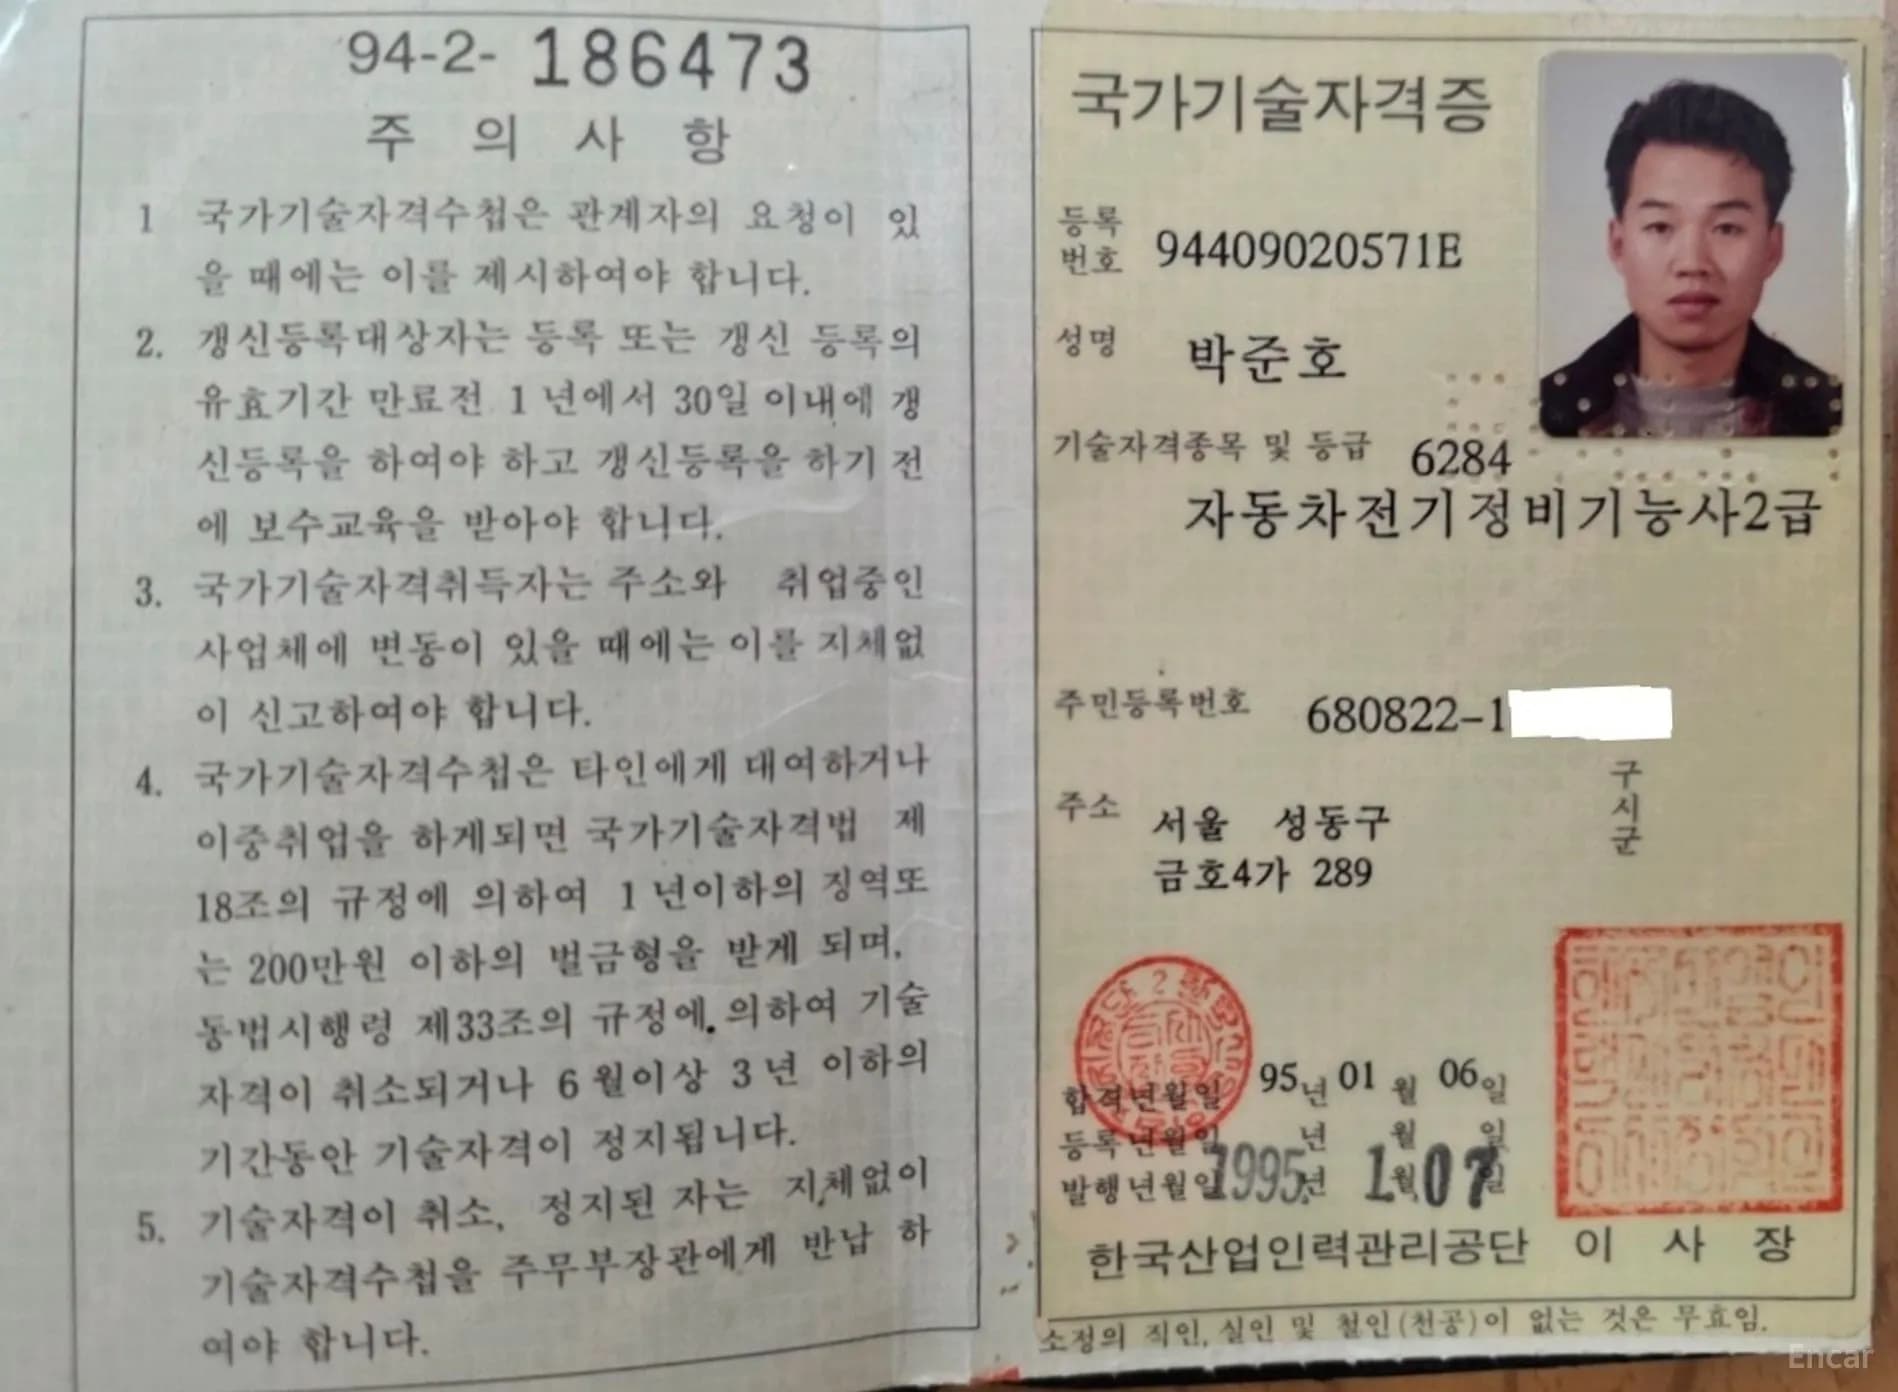 94-2- 186473
주 의 사 항
1 국가기술자격수첩은 관계자의 요청이 있
을 때에는 이를 제시하여야 합니다.
2. 갱신등록대상자는 등록 또는 갱신 등록의
유효기간 만료전 1년에서 30일 이내에 갱
신등록을 하여야 하고 갱신등록을 하기 전
에 보수교육을 받아야 합니다.
3. 국가기술자격취득자는 주소와 취업중인
사업체에 변동이 있을 때에는 이를 지체없
이 신고하여야 합니다.
4. 국가기술자격수첩은 타인에게 대여하거나
이중취업을 하게되면 국가기술자격법 제
18조의 규정에 의하여 1년이하의 징역또
는 200만원 이하의 벌금형을 받게 되며,
동법시행령 제33조의 규정에 의하여 기술
자격이 취소되거나 6월이상 3년 이하의
기간동안 기술자격이 정지됩니다.
5. 기술자격이 취소, 정지된 자는 지체없이
기술자격수첩을 주무부장관에게 반납 하
여야 합니다.
국가기술자격증
등록
번호 94409020571E
성명 박준호
기술자격종목 및 등급 6284
자동차전기정비기능사2급
주민등록번호 680822-1
구
시
군
주소 서울 성동구
금호4가 289
합격년월일 95년 01월 06일
등록년월일 년 월 일
발행년월일 1995년 1월 07일
한국산업인력관리공단 이 사 장
소정의 직인, 실인 및 철인(천공)이 없는 것은 무효임.
Encar